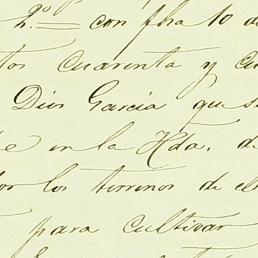 2.º = con fha 10 de
tos cuarenta y cu
Dios Garcia que s
e en la Hda. de
los terrenos de el
para cultivar